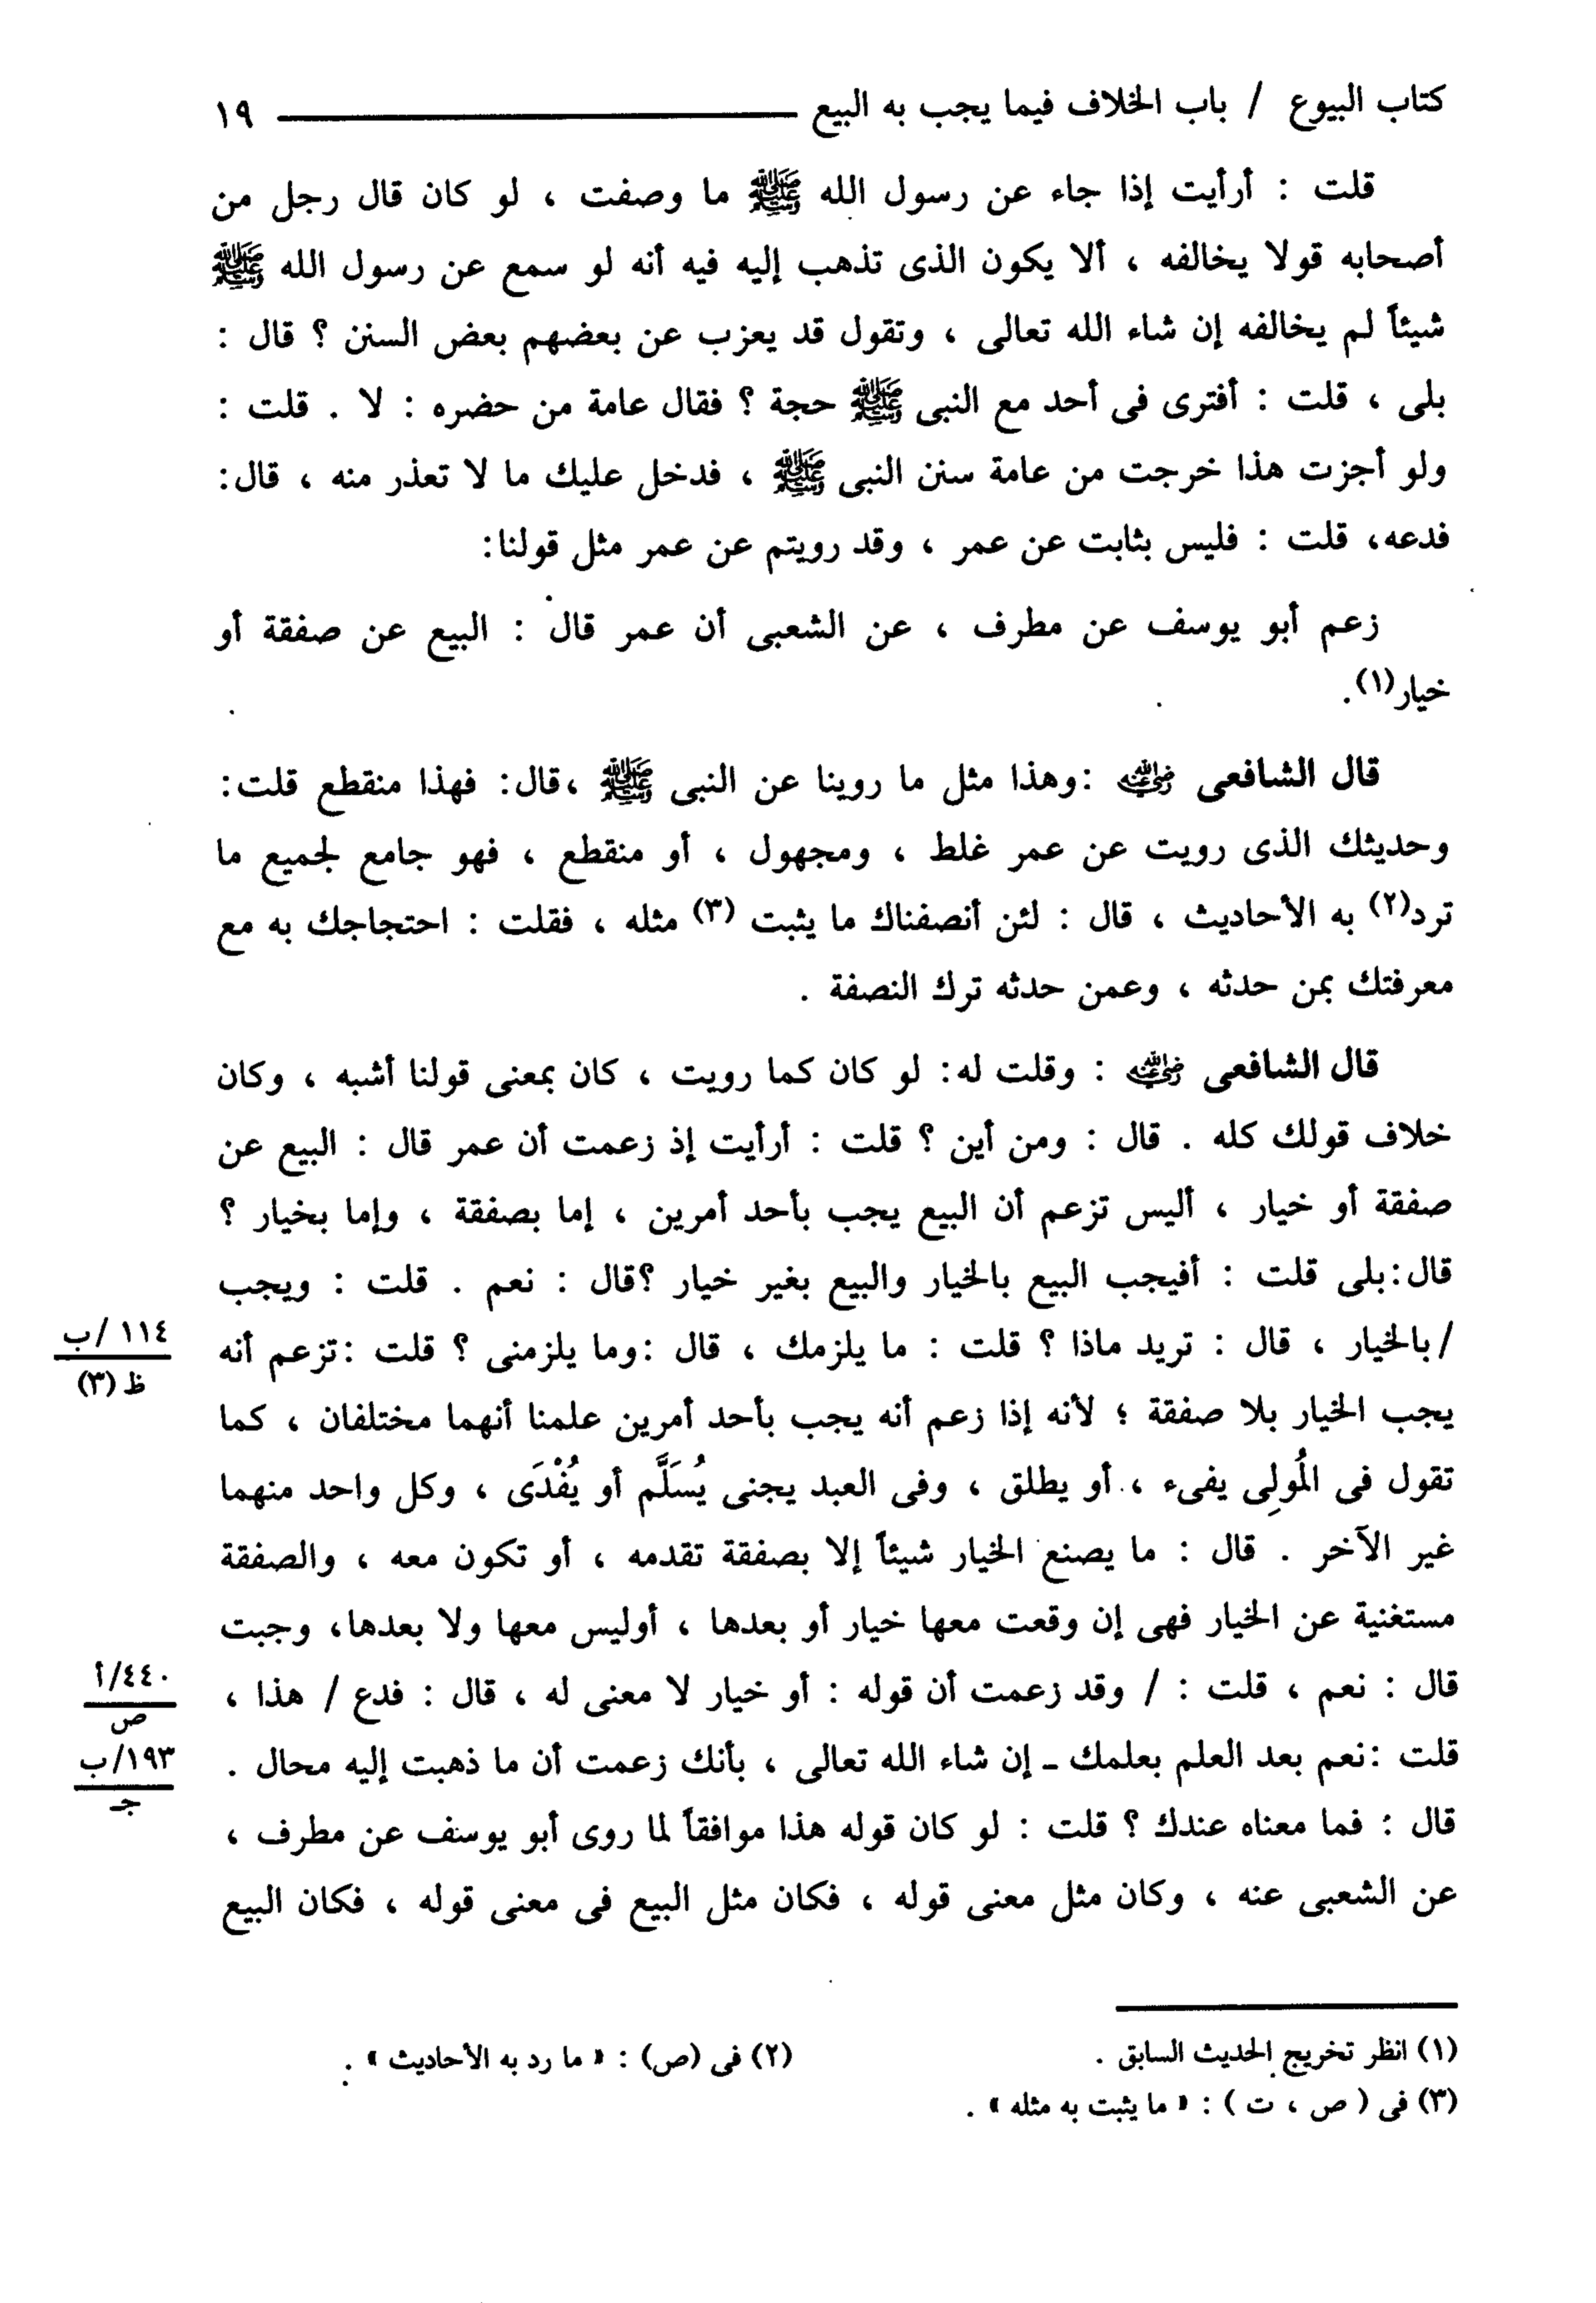 كتاب البيوع / باب الخلاف فيما يجب به البيع ١٩
قلت : أرأيت إذا جاء عن رسول الله ﷺ ما وصفت ، لو كان قال رجل من
أصحابه قولا يخالفه ، ألا يكون الذى تذهب إليه فيه أنه لو سمع عن رسول الله ﷺ
شيئاً لم يخالفه إن شاء الله تعالى ، وتقول قد يعزب عن بعضهم بعض السنن ؟ قال :
بلى ، قلت : أفترى فى أحد مع النبى ﷺ حجة ؟ فقال عامة من حضره : لا . قلت :
ولو أجزت هذا خرجت من عامة سنن النبى ﷺ ، فدخل عليك ما لا تعذر منه ، قال:
فدعه، قلت : فليس بثابت عن عمر ، وقد رويتم عن عمر مثل قولنا:
زعم أبو يوسف عن مطرف ، عن الشعبى أن عمر قال : البيع عن صفقة أو
خيار(١).
قال الشافعى رضي الله عنه :وهذا مثل ما روينا عن النبى ﷺ ،قال: فهذا منقطع قلت:
وحديثك الذى رويت عن عمر غلط ، ومجهول ، أو منقطع ، فهو جامع لجميع ما
ترد(٢) به الأحاديث ، قال : لئن أنصفناك ما يثبت (٣) مثله ، فقلت : احتجاجك به مع
معرفتك بمن حدثه ، وعمن حدثه ترك النصفة .
قال الشافعى رضي الله عنه : وقلت له: لو كان كما رويت ، كان بمعنى قولنا أشبه ، وكان
خلاف قولك كله . قال : ومن أين ؟ قلت : أرأيت إذ زعمت أن عمر قال : البيع عن
صفقة أو خيار ، أليس تزعم أن البيع يجب بأحد أمرين ، إما بصفقة ، وإما بخيار ؟
قال:بلى قلت : أفيجب البيع بالخيار والبيع بغير خيار ؟قال : نعم . قلت : ويجب
/ بالخيار ، قال : تريد ماذا ؟ قلت : ما يلزمك ، قال :وما يلزمنى ؟ قلت :تزعم أنه
١١٤ /ب
ظ (٣)
يجب الخيار بلا صفقة ؛ لأنه إذا زعم أنه يجب بأحد أمرين علمنا أنهما مختلفان ، كما
تقول فى المُولِى يفىء ، أو يطلق ، وفى العبد يجنى يُسَلَّم أو يُفْدَى ، وكل واحد منهما
غير الآخر . قال : ما يصنع الخيار شيئاً إلا بصفقة تقدمه ، أو تكون معه ، والصفقة
مستغنية عن الخيار فهى إن وقعت معها خيار أو بعدها ، أوليس معها ولا بعدها، وجبت
قال : نعم ، قلت : / وقد زعمت أن قوله : أو خيار لا معنى له ، قال : فدع / هذا ،
٤٤٠/أ
ص
قلت :نعم بعد العلم بعلمك ـ إن شاء الله تعالى ، بأنك زعمت أن ما ذهبت إليه محال .
١٩٣/ب
جـ
قال : فما معناه عندك ؟ قلت : لو كان قوله هذا موافقاً لما روى أبو يوسف عن مطرف ،
عن الشعبى عنه ، وكان مثل معنى قوله ، فكان مثل البيع فى معنى قوله ، فكان البيع
(١) انظر تخريج الحديث السابق . (٢) فى (ص) : « ما رد به الأحاديث » .
(٣) فى ( ص ، ت ) : « ما يثبت به مثله » .